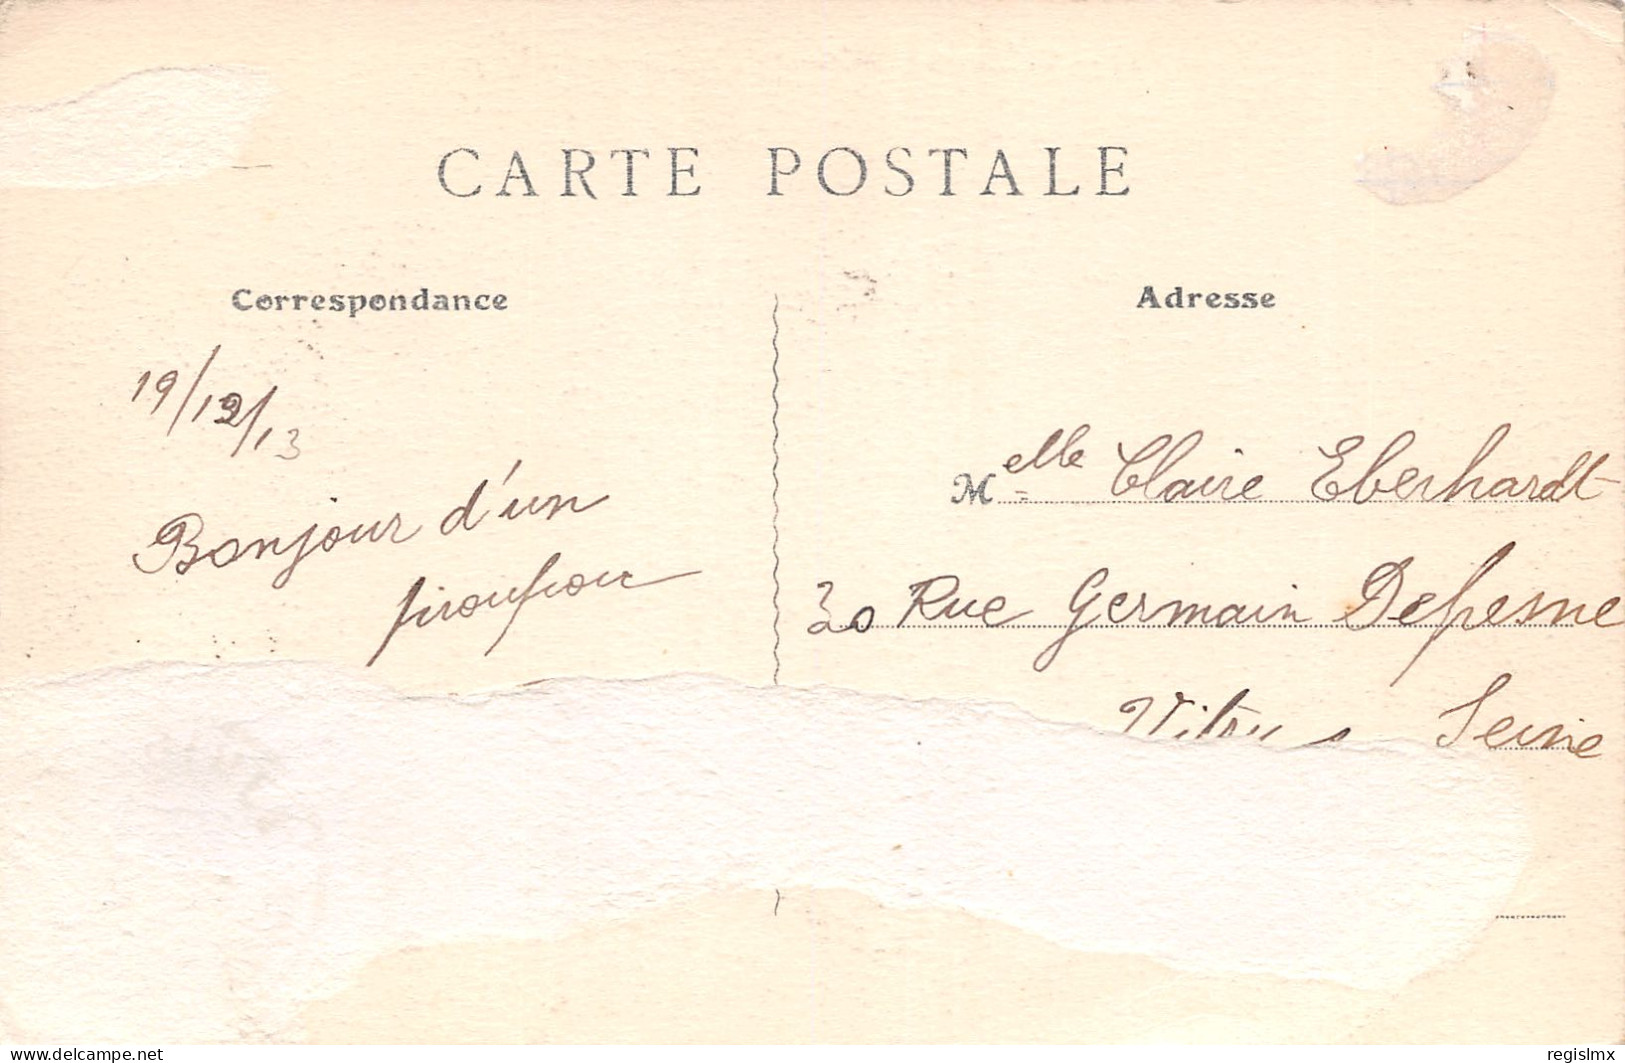 CARTE POSTALE
Correspondance
Adresse
19/12/13
Bonjour d'un
pioupiou
Melle Claire Eberhardt
30 Rue Germain Defresne
Vitry s Seine
delcampe.net
regislmx